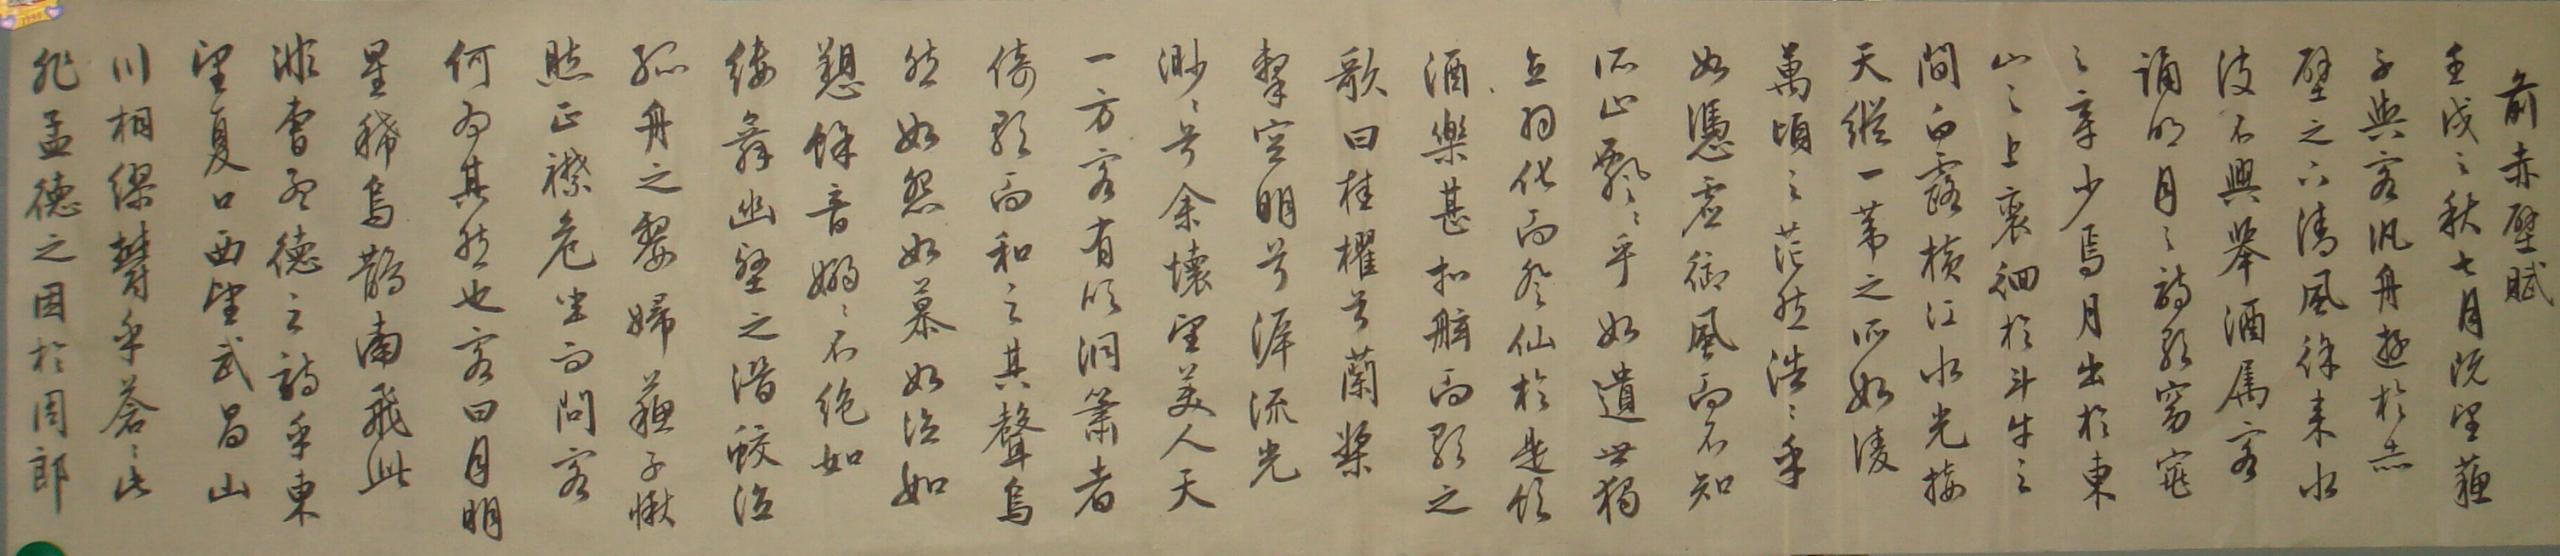 前赤壁賦
壬戌之秋七月既望蘇
子與客汎舟遊於赤
壁之下清風徐來水
波不興舉酒属客
誦明月之詩歌窈窕
之章少焉月出於東
山之上裵徊於斗牛之
間白露横江水光接
天縱一葦之所如凌
萬頃之茫然浩々乎
如憑虛御風而不知
所止飄々乎如遺世獨
立羽化而登仙於是飲
酒樂甚扣舷而歌之
歌曰桂櫂兮蘭槳
擊空明兮泝流光
渺々兮余懷望美人天
一方客有吹洞簫者
倚歌而和之其聲嗚
然如怨如慕如泣如
愬餘音嫋々不絕如
縷舞幽壑之潛蛟泣
孤舟之嫠婦蘇子愀
然正襟危坐而問客
何為其然也客曰月明
星稀烏鵲南飛此
非曹孟德之詩乎東
望夏口西望武昌山
川相繆鬱乎蒼々此
非孟德之困於周郎